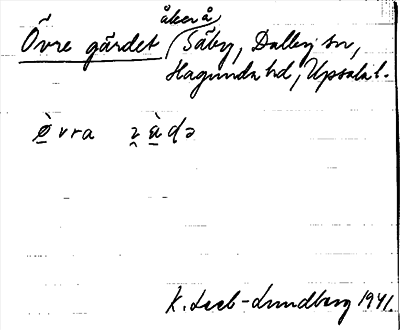 åker å
Övre gärdet (Säby, Dalby sn,
Hagunda hd, Upsala l.
è̱vra ɀ à̱də
K. Leeb-Lundberg 1941.